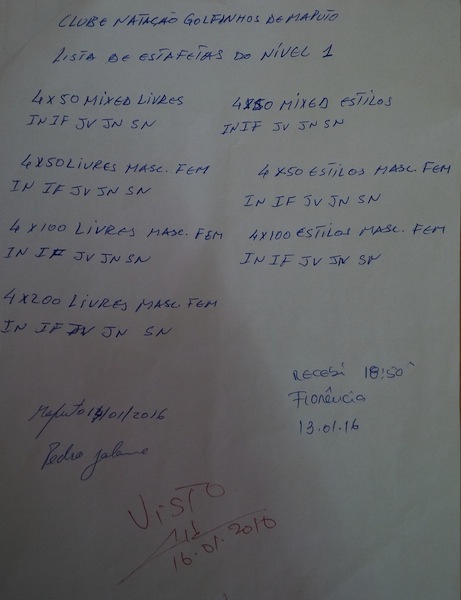 CLUBE NATAÇÃO GOLFINHOS DE MAPUTO
LISTA DE ESTAFETAS DO NÍVEL 1
4X50 MIXED LIVRES
IN IF JV JN SN
4X50 MIXED ESTILOS
IN IF JV JN SN
4X50 LIVRES MASC. FEM
IN IF JV JN SN
4X50 ESTILOS MASC. FEM
IN IF JV JN SN
4X100 LIVRES MASC. FEM
IN IF JV JN SN
4X100 ESTILOS MASC. FEM
IN IF JV JN SN
4X200 LIVRES MASC FEM
IN IF JV JN SN
RECEBI 18:50
Florência
13.01.16
Maputo /01/2016
Pedro
VISTO
16.01.2016